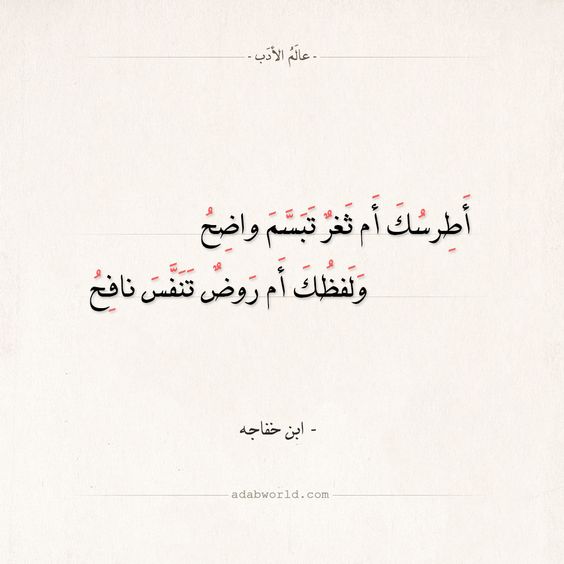 - عالَمُ الأدَب -
أَطِرسُكَ أَم ثَغرٌ تَبَسَّمَ واضِحُ
وَلَفظُكَ أَم رَوضٌ تَنَفَّسَ نافِحُ
- ابن خفاجه
adabworld.com